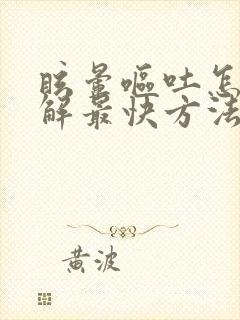 眩晕呕吐怎
解最快方法
黄波